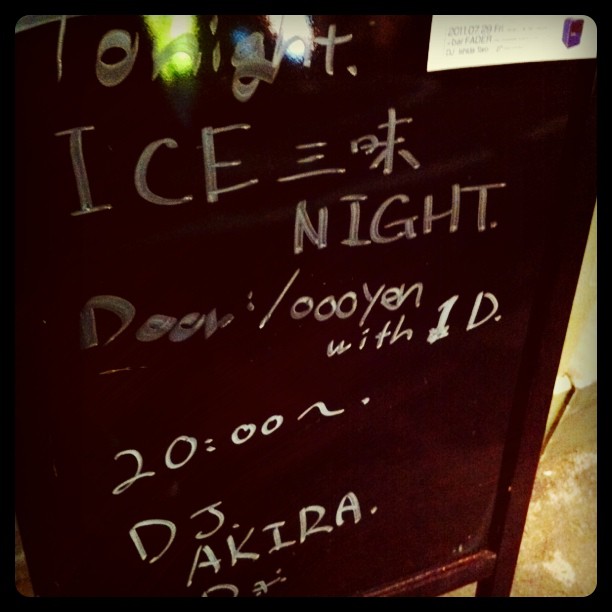 Tonight.
2011.07.29 Fri
bar FADER
DJ
ICE三味
NIGHT.
Door:/000yen
with 1D.
20:00~.
DJ.
AKIRA.